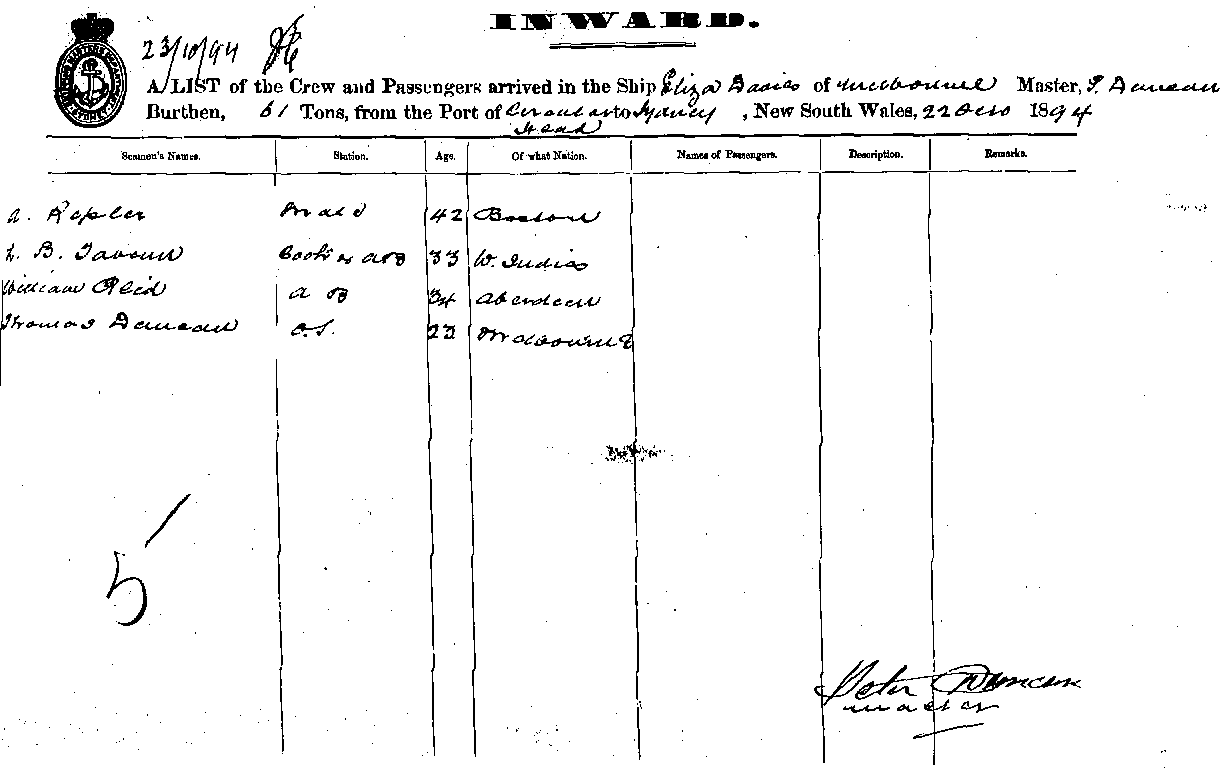 INWARD.
23/10/94
A LIST of the Crew and Passengers arrived in the Ship Eliza Davies of Melbourne Master, P. Duncan
Burthen, 61 Tons, from the Port of Circular to Sydney, New South Wales, 22 1894
Head
Seamen's Names. Station. Age. Of what Nation. Names of Passengers. Description. Remarks.
A. Kepler Mate 42 Boston
B. Cook & AB 33 W. Indies
William Reid A B 34 Aberdeen
Thomas Duncan O.S. 22 Melbourne
5
Peter Duncan
Master